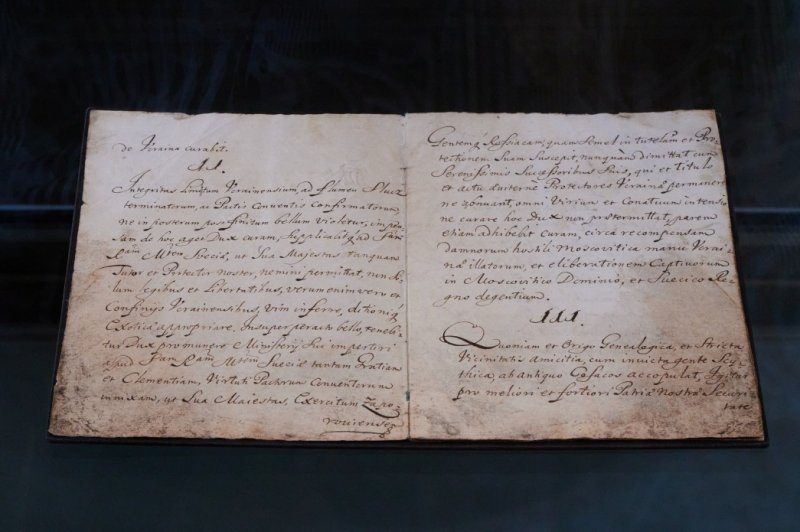 de Vcraina curabit.
II.
Integritas Limitum Vcrainensium, ad flumen Sluez
terminatorum, ac Pactis Conventis Confirmatorum,
ne in posterum post finitum bellum violetur, impen-
sam de hoc aget Dux curam, Supplicabitq́ ad Sam
Ram Mtem Sveciæ, ut Sua Majestas tanquam
Tutor et Protector noster, nemini permittat, non so-
lum legibus et Libertatibus, verum enim vero et
Confinijs Vcrainensibus, vim inferre, ditioniq́
Exoticæ appropriare. Insuper peracto bello, tenebi-
tur Dux pro munere Ministerij Sui impertiri
apud Sam Ram Mtem Sueciæ tantam Gratiam
et Clementiam, Virtuti Pactorum Conventorum
innixam, ut Sua Maiestas, Exercitum Zapo-
rovienseq́
Gentemq́ Rossiacam, quam Semel in tutelam et Pro-
tectionem Suam Suscepit, nunquam dimittat cum
Serenissimis Successoribus Suis, qui et titulo
et actu æterne Protectores Vcrainæ permanere
ne zonuant, omni Virium et Conatuum intensio-
ne curare hoc Dux non prætermittat, parem
etiam adhibebit Curam, circa recompensam
damnorum hostili Moscovitica manu Vcrai-
næ illatorum, et eliberationem Captivorum
in Moscovitico Dominio, et Suecico Re-
gno degentium.
III.
Quoniam et Origo Genealogica, et Stricta
Vicinitatis amicitia, cum invicta gente Scy-
thica, ab antiquo Cosacos accopulat, Igitur
pro meliori et fortiori Patriæ nostræ Securi-
tate